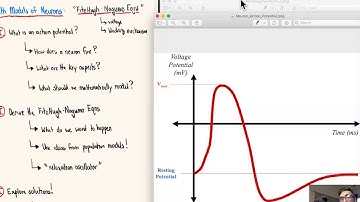 Math Models of Neurons: "FitzHugh-Nagumo Eqns"
↳ voltage
↳ blocking mechanism
What is an action potential?
↳ How does a neuron fire?
↳ What are the key aspects?
↳ What should we mathematically model?
Derive the FitzHugh-Nagumo Eqns
↳ What do we want to happen
↳ Use ideas from population models!
↳ "relaxation oscillator"
Explore solutions!
Neuron_Action_Potential.png
Voltage
Potential
(mV)
V
Time (ms)
Resting
Potential